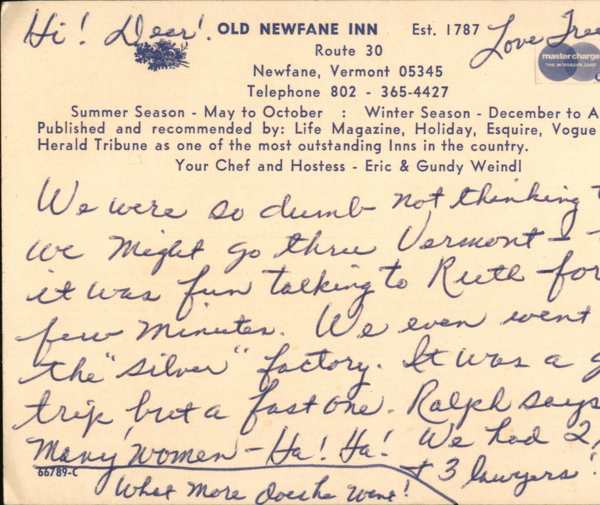 Hi! Dear! OLD NEWFANE INN Est. 1787 Love
Route 30
master charge
THE INTERBANK CARD
Newfane, Vermont 05345
Telephone 802 - 365-4427
Summer Season - May to October : Winter Season - December to A
Published and recommended by: Life Magazine, Holiday, Esquire, Vogue
Herald Tribune as one of the most outstanding Inns in the country.
Your Chef and Hostess - Eric & Gundy Weindl
We were so dumb not thinking
we might go thru Vermont -
it was fun talking to Ruth for
few minutes. We even went
the "silver" factory. It was a g
trip, but a fast one. Ralph says
Many women - Ha! Ha! We had 2,
+ 3 lawyers!
66789-C
What more does he want!